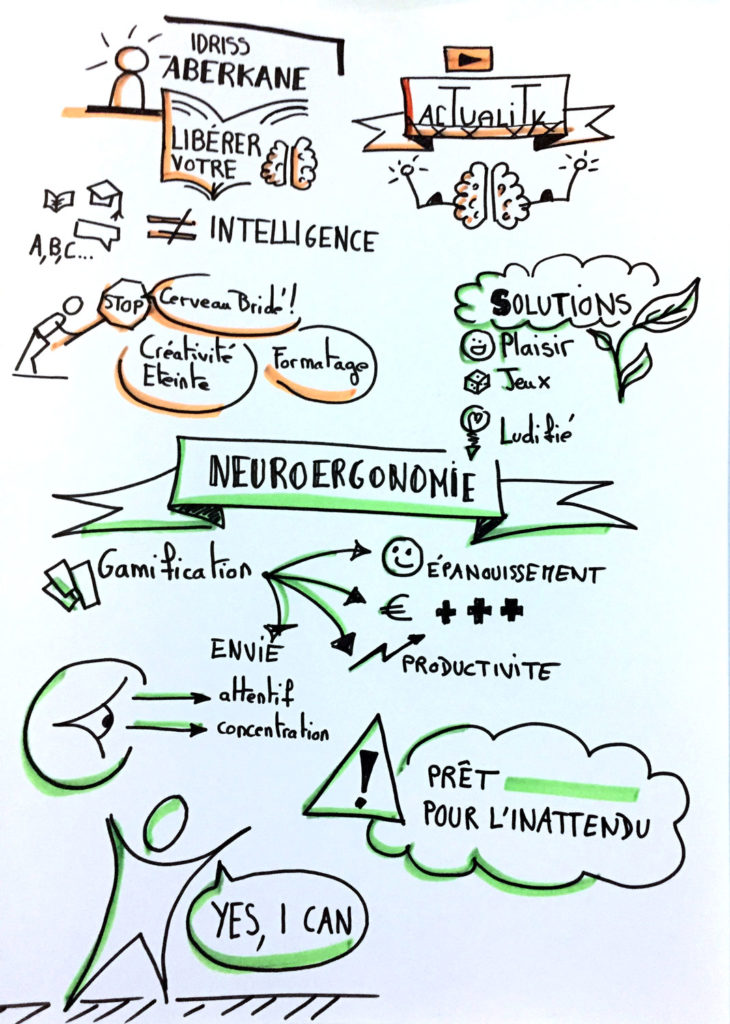 IDRISS
ABERKANE
LIBÉRER
VOTRE
ACTUALITY
A,B,C...
≠ INTELLIGENCE
STOP
Cerveau Bridé!
Créativité
Eteinte
Formatage
SOLUTIONS
Plaisir
Jeux
Ludifié
NEUROERGONOMIE
Gamification
ÉPANOUISSEMENT
€ + + +
PRODUCTIVITE
ENVIE
attentif
concentration
!
PRÊT
POUR L'INATTENDU
YES, I CAN